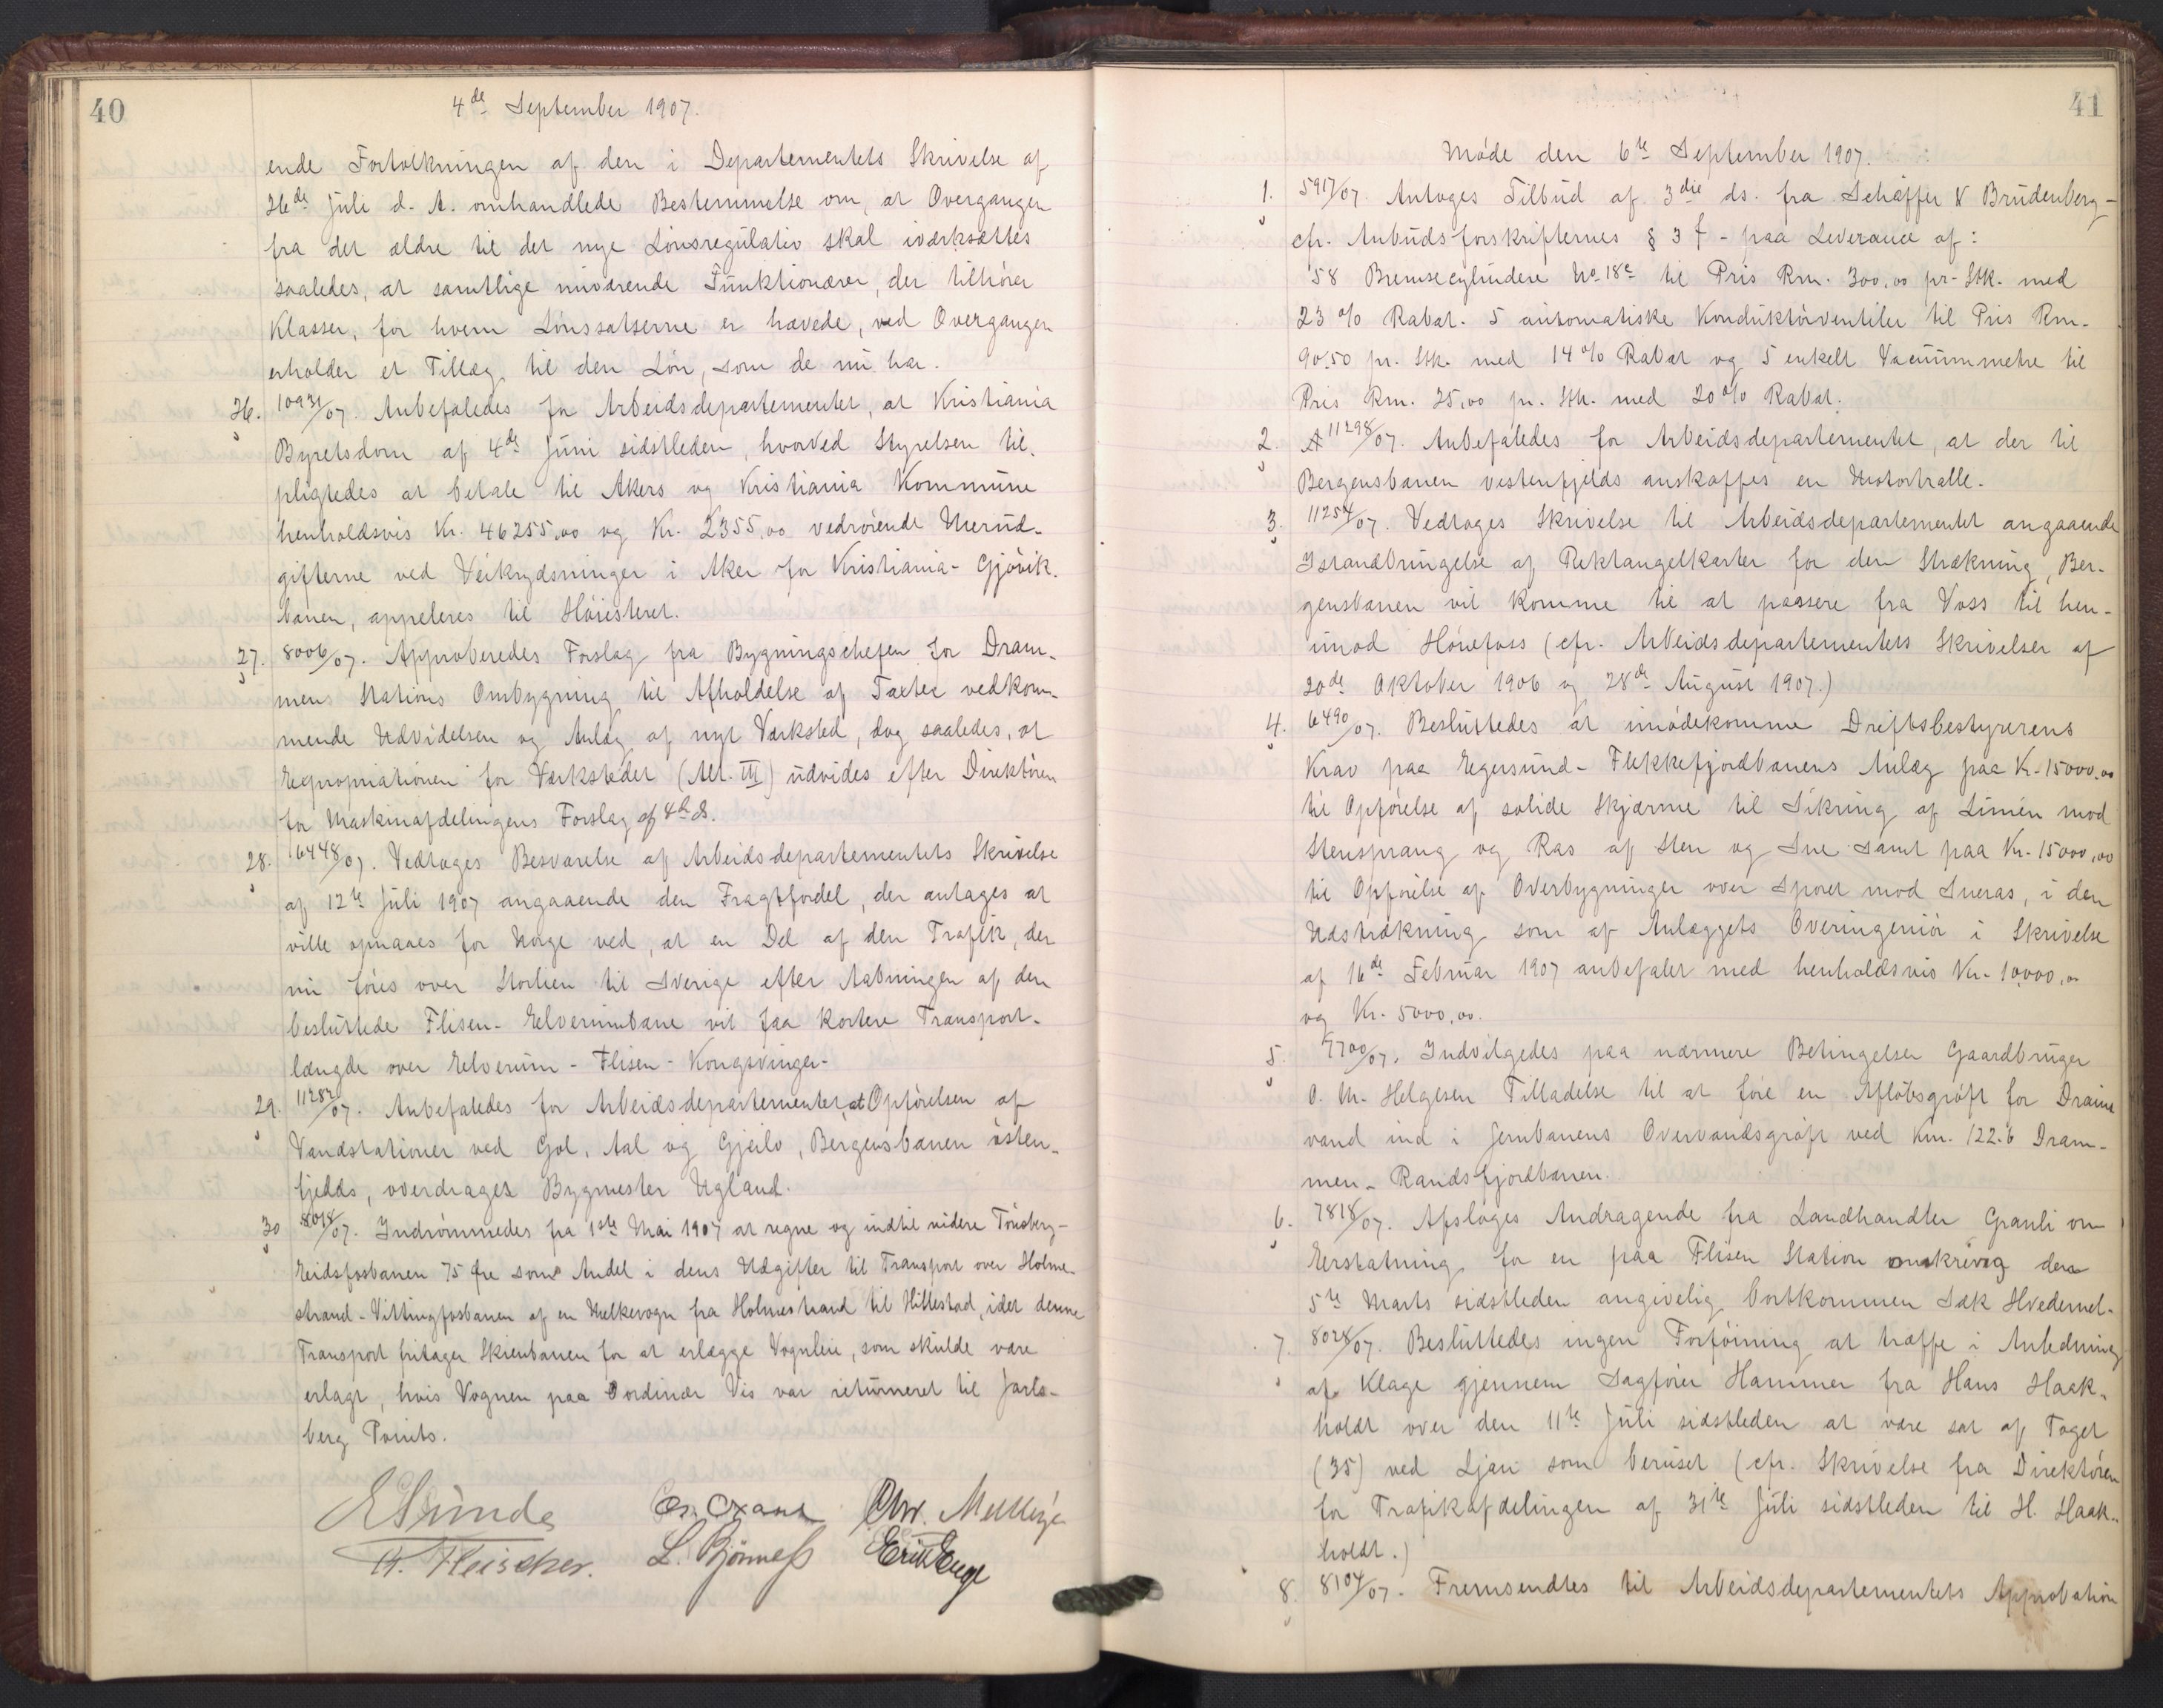 40
4de September 1907.
ende Fortolkningen af den i Departementets Skrivelse af
26de Juli d. A. omhandlede Bestemmelse om, at Overgangen
fra det ældre til det nye Lönsregulativ skal iværksættes
saaledes, at samtlige nuværende Funktionærer, der tilhörer
Klasser, for hvem Lönssatserne er hævede, ved Overgangen
erholder et Tillæg til den Lön, som de nu har.
26. 10931/07. Anbefaledes for Arbeidsdepartementet, at Kristiania
Byretsdom af 4de Juni sidstleden, hvorved Styrelsen til-
pligtedes at betale til Akers og Kristiania Kommune
henholdsvis Kr. 46255,00 og Kr. 2355,00 vedrörende Merud-
gifterne ved Veikrydsninger i Aker for Kristiania-Gjövik-
banen, appelleres til Höiesteret.
27. 8006/07. Approberedes Forslag fra Bygningschefen for Dram-
mens Stations Ombygning til Afholdelse af Taxter vedkom-
mende Udvidelsen og Anlæg af nyt Værksted, dog saaledes, at
Expropriationen for Værkstedet (Alt. III) udvides efter Direktören
for Maskinafdelingens Forslag af 4de ds.
28. 6448/07. Vedtoges Besvarelse af Arbeidsdepartementets Skrivelse
af 12te Juli 1907 angaaende den Fragtfordel, der antages at
ville opnaaes for Norge ved, at en Del af den Trafik, der
nu föres over Storlien til Sverige efter Aabningen af den
besluttede Flisen-Elverumbane vil faa kortere Transport-
længde over Elverum-Flisen-Kongsvinger-
29. 11282/07. Anbefaledes for Arbeidsdepartementet, at Opförelsen af
Vandstationer ved Gol, Aal og Gjeilo, Bergensbanen östen-
fjelds, overdrages Bygmester Ugland.
30 8018/07. Indrömmedes fra 1ste Mai 1907 at regne og indtil videre Tönsberg-
Eidsfosbanen 75 Öre som Andel i dens Udgifter til Transport over Holme-
strand-Vittingfosbanen af en Melkevogn fra Holmestrand til Hillestad, idet denne
Transport fritager Skienbanen for at erlægge Vognleie, som skulde være
erlagt, hvis Vognen paa ordinær Vis var returneret til Jarls-
berg Points.
E Sunde Chr. Mellbye
H. Fleischer. L. Bjørness Erik Enge
41
Möde den 6te September 1907.
1. 5917/07. Antoges Tilbud af 3die ds. fra Schäffer & Brudenberg -
cfr. Anbudsforskrifternes § 3 f - paa Leverance af:
58 Bremsecylindere No 18e til Pris Rm. 300,00 pr. Stk. med
23 % Rabat. 5 automatiske Konduktörventiler til Pris Rm.
90.50 pr. Stk. med 14 % Rabat og 5 enkelt Vacuummetre til
Pris Rm. 25,00 pr. Stk. med 20 % Rabat.
2. A 11298/07. Anbefaledes for Arbeidsdepartementet, at der til
Bergensbanen vestenfjelds anskaffes en Motortralle.
3. 11254/07. Vedtoges Skrivelse til Arbeidsdepartementet angaaende
Istandbringelse af Rektangelkarter for den Strækning, Ber-
gensbanen vil komme til at passere fra Voss til hen-
imod Hönefoss (cfr. Arbeidsdepartementets Skrivelser af
20de Oktober 1906 og 28de August 1907.)
4. 6490/07. Besluttedes at imödekomme Driftsbestyrerens
Krav paa Egersund-Flekkefjordbanens Anlæg paa Kr. 15000,00
til Opförelse af solide Skjærme til Sikring af Linien mod
Stensprang og Ras af Sten og Sne samt paa Kr. 15000,00
til Opförelse af Overbygninger over Sporet mod Sneras, i den
Udstrækning som af Anlæggets Overingeniör i Skrivelse
af 16de Februar 1907 anbefalet med henholdsvis Kr. 10,000,00
og Kr. 5000,00.
5. 7700/07. Indvilgedes paa nærmere Betingelser Gaardbruger
O. M. Helgesen Tilladelse til at före en Aflöbsgröft for Drains
vand ind i Jernbanens Overvandsgröft ved Km. 122.6 Dram-
men-Randsfjordbanen.
6. 7818/07. Afsloges Andragende fra Landhandler Granli om
Erstatning for en paa Flisen Station omkring den
5te Marts sidstleden angivelig bortkommen Sæk Hvedemel.
7. 8028/07. Besluttedes ingen Forföining at træffe i Anledning
af Klage gjennem Sagförer Hammer fra Hans Haak-
holdt over den 11te Juli sidstleden at være sat af Toget
(35) ved Ljan som beruset (cfr. Skrivelse fra Direktören
for Trafikafdelingen af 31te Juli sidstleden til H. Haak-
holdt.)
8. 8104/07. Fremsendtes til Arbeidsdepartementets Approbation